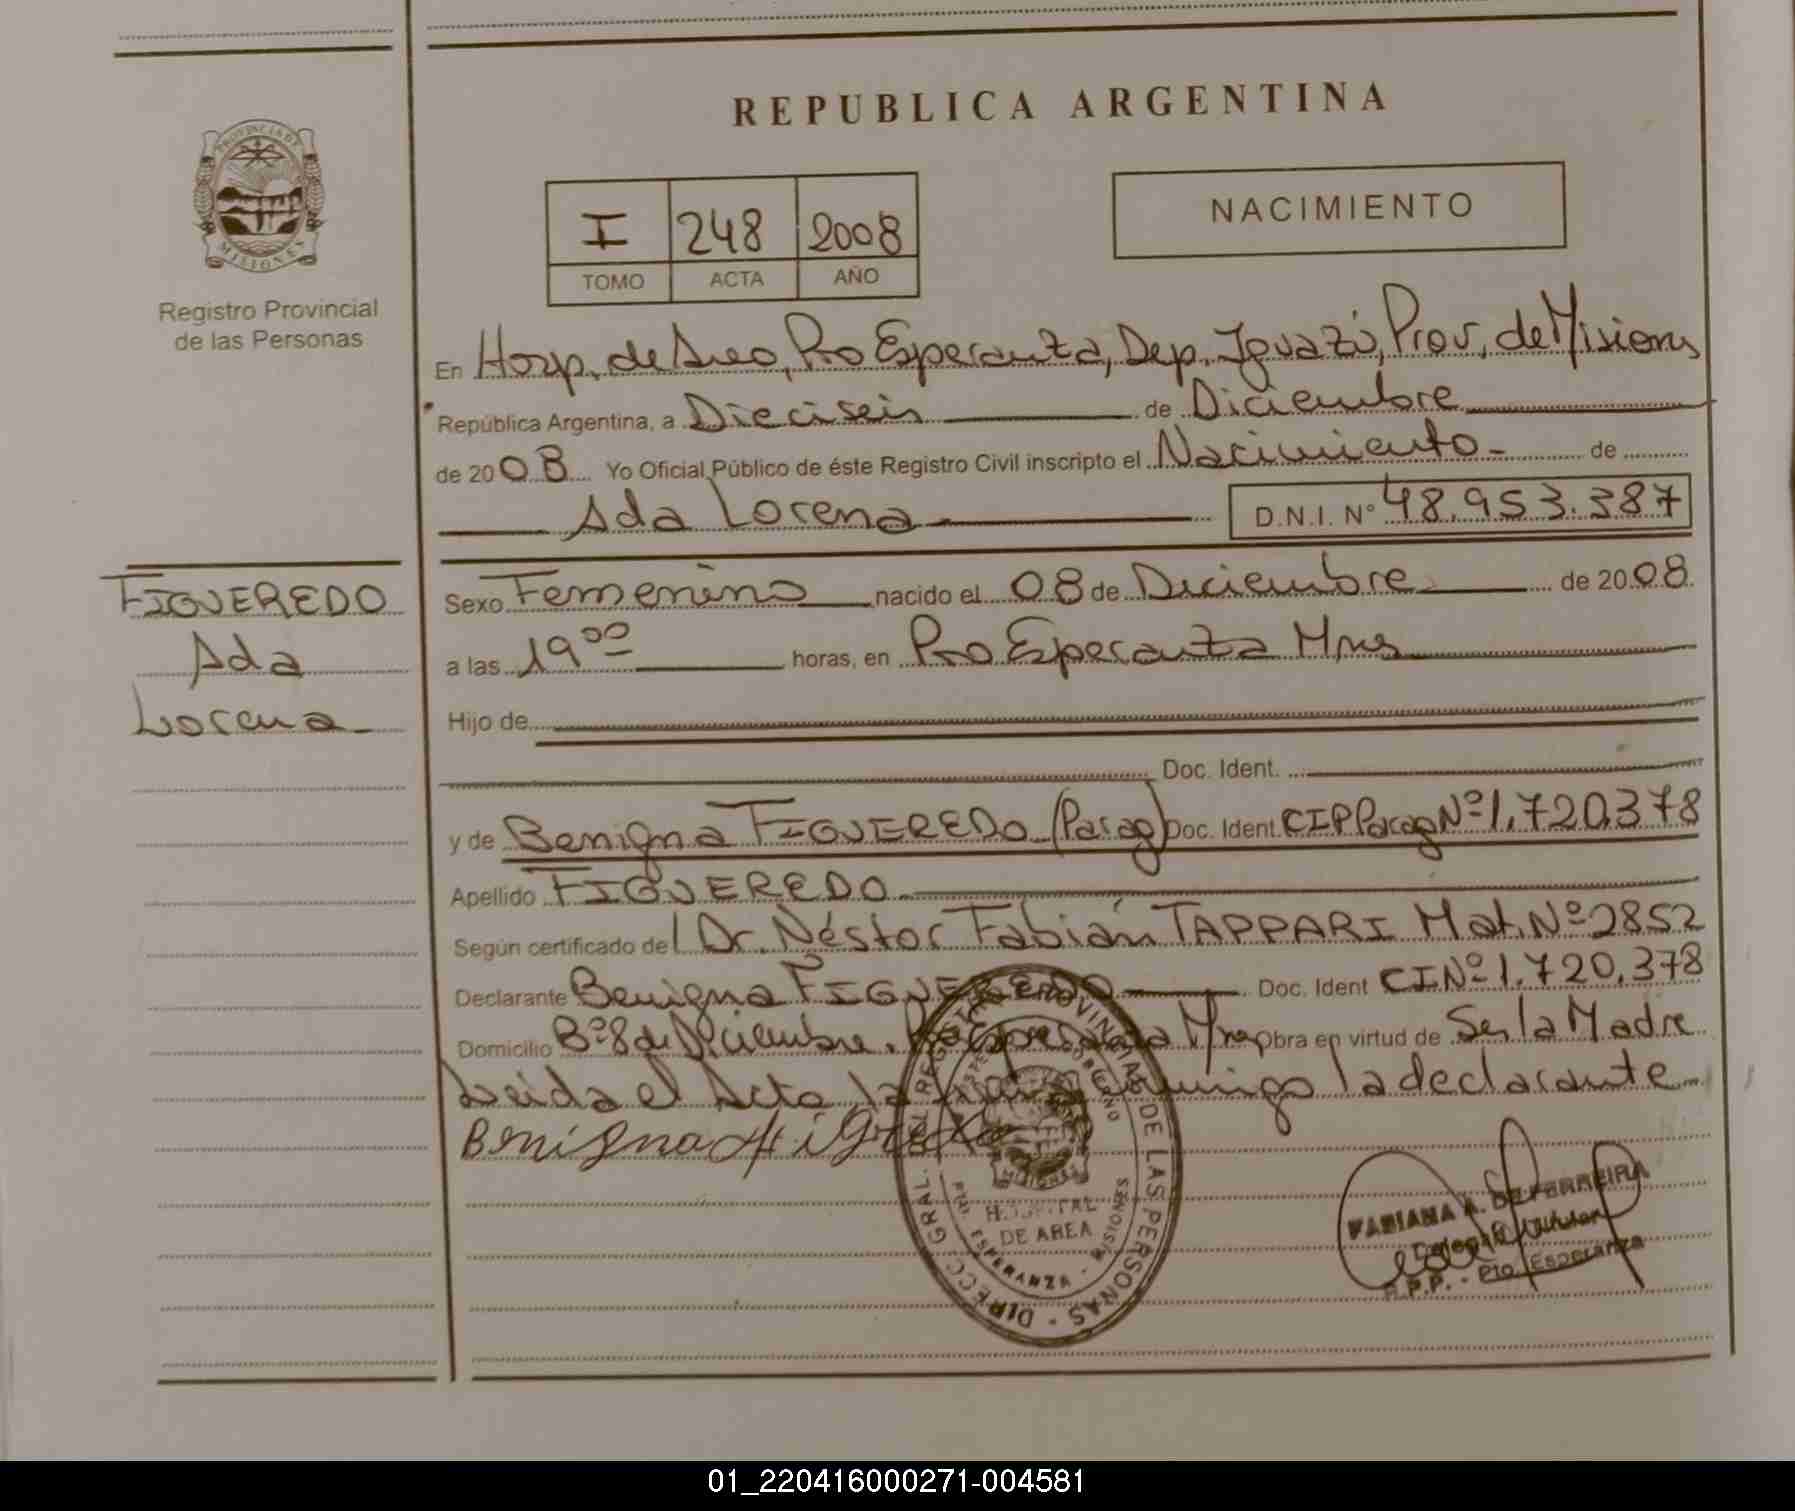 REPUBLICA ARGENTINA
PROVINCIA DE
MISIONES
Registro Provincial
de las Personas
I 248 2008
TOMO ACTA AÑO
NACIMIENTO
En Hosp. de Area, Pto Esperanza, Dep. Iguazú, Prov. de Misiones
República Argentina, a Dieciseis de Diciembre
de 2008 Yo Oficial Público de éste Registro Civil inscripto el Nacimiento - de
Ada Lorena D.N.I. Nº 48.953.387
FIGUEREDO
Ada
Lorena
Sexo Femenino nacido el 08 de Diciembre de 2008
a las 19 00 horas, en Pto Esperanza Mnes
Hijo de
Doc. Ident.
y de Benigna FIGUEREDO (Parag) Doc. Ident. CIP Parag Nº 1.720.378
Apellido FIGUEREDO
Según certificado del Dr. Néstor Fabián TAPPARI Mat. Nº 2852
Declarante Benigna FIGUEREDO Doc. Ident CI Nº 1.720.378
Domicilio Bº 8 de Diciembre. Pto Esperanza Mnes Obra en virtud de Ser la Madre
Leida el Acta la firma conmigo la declarante
Benigna Figueredo
DIRECC. GRAL. DEL REGISTRO PROVINCIAL DE LAS PERSONAS
MISIONES
HOSPITAL
DE AREA
ESPERANZA - MISIONES
FABIANA A. DE FERREIRA
Delegada Titular
R.P.P. - Pto. Esperanza
01_220416000271-004581